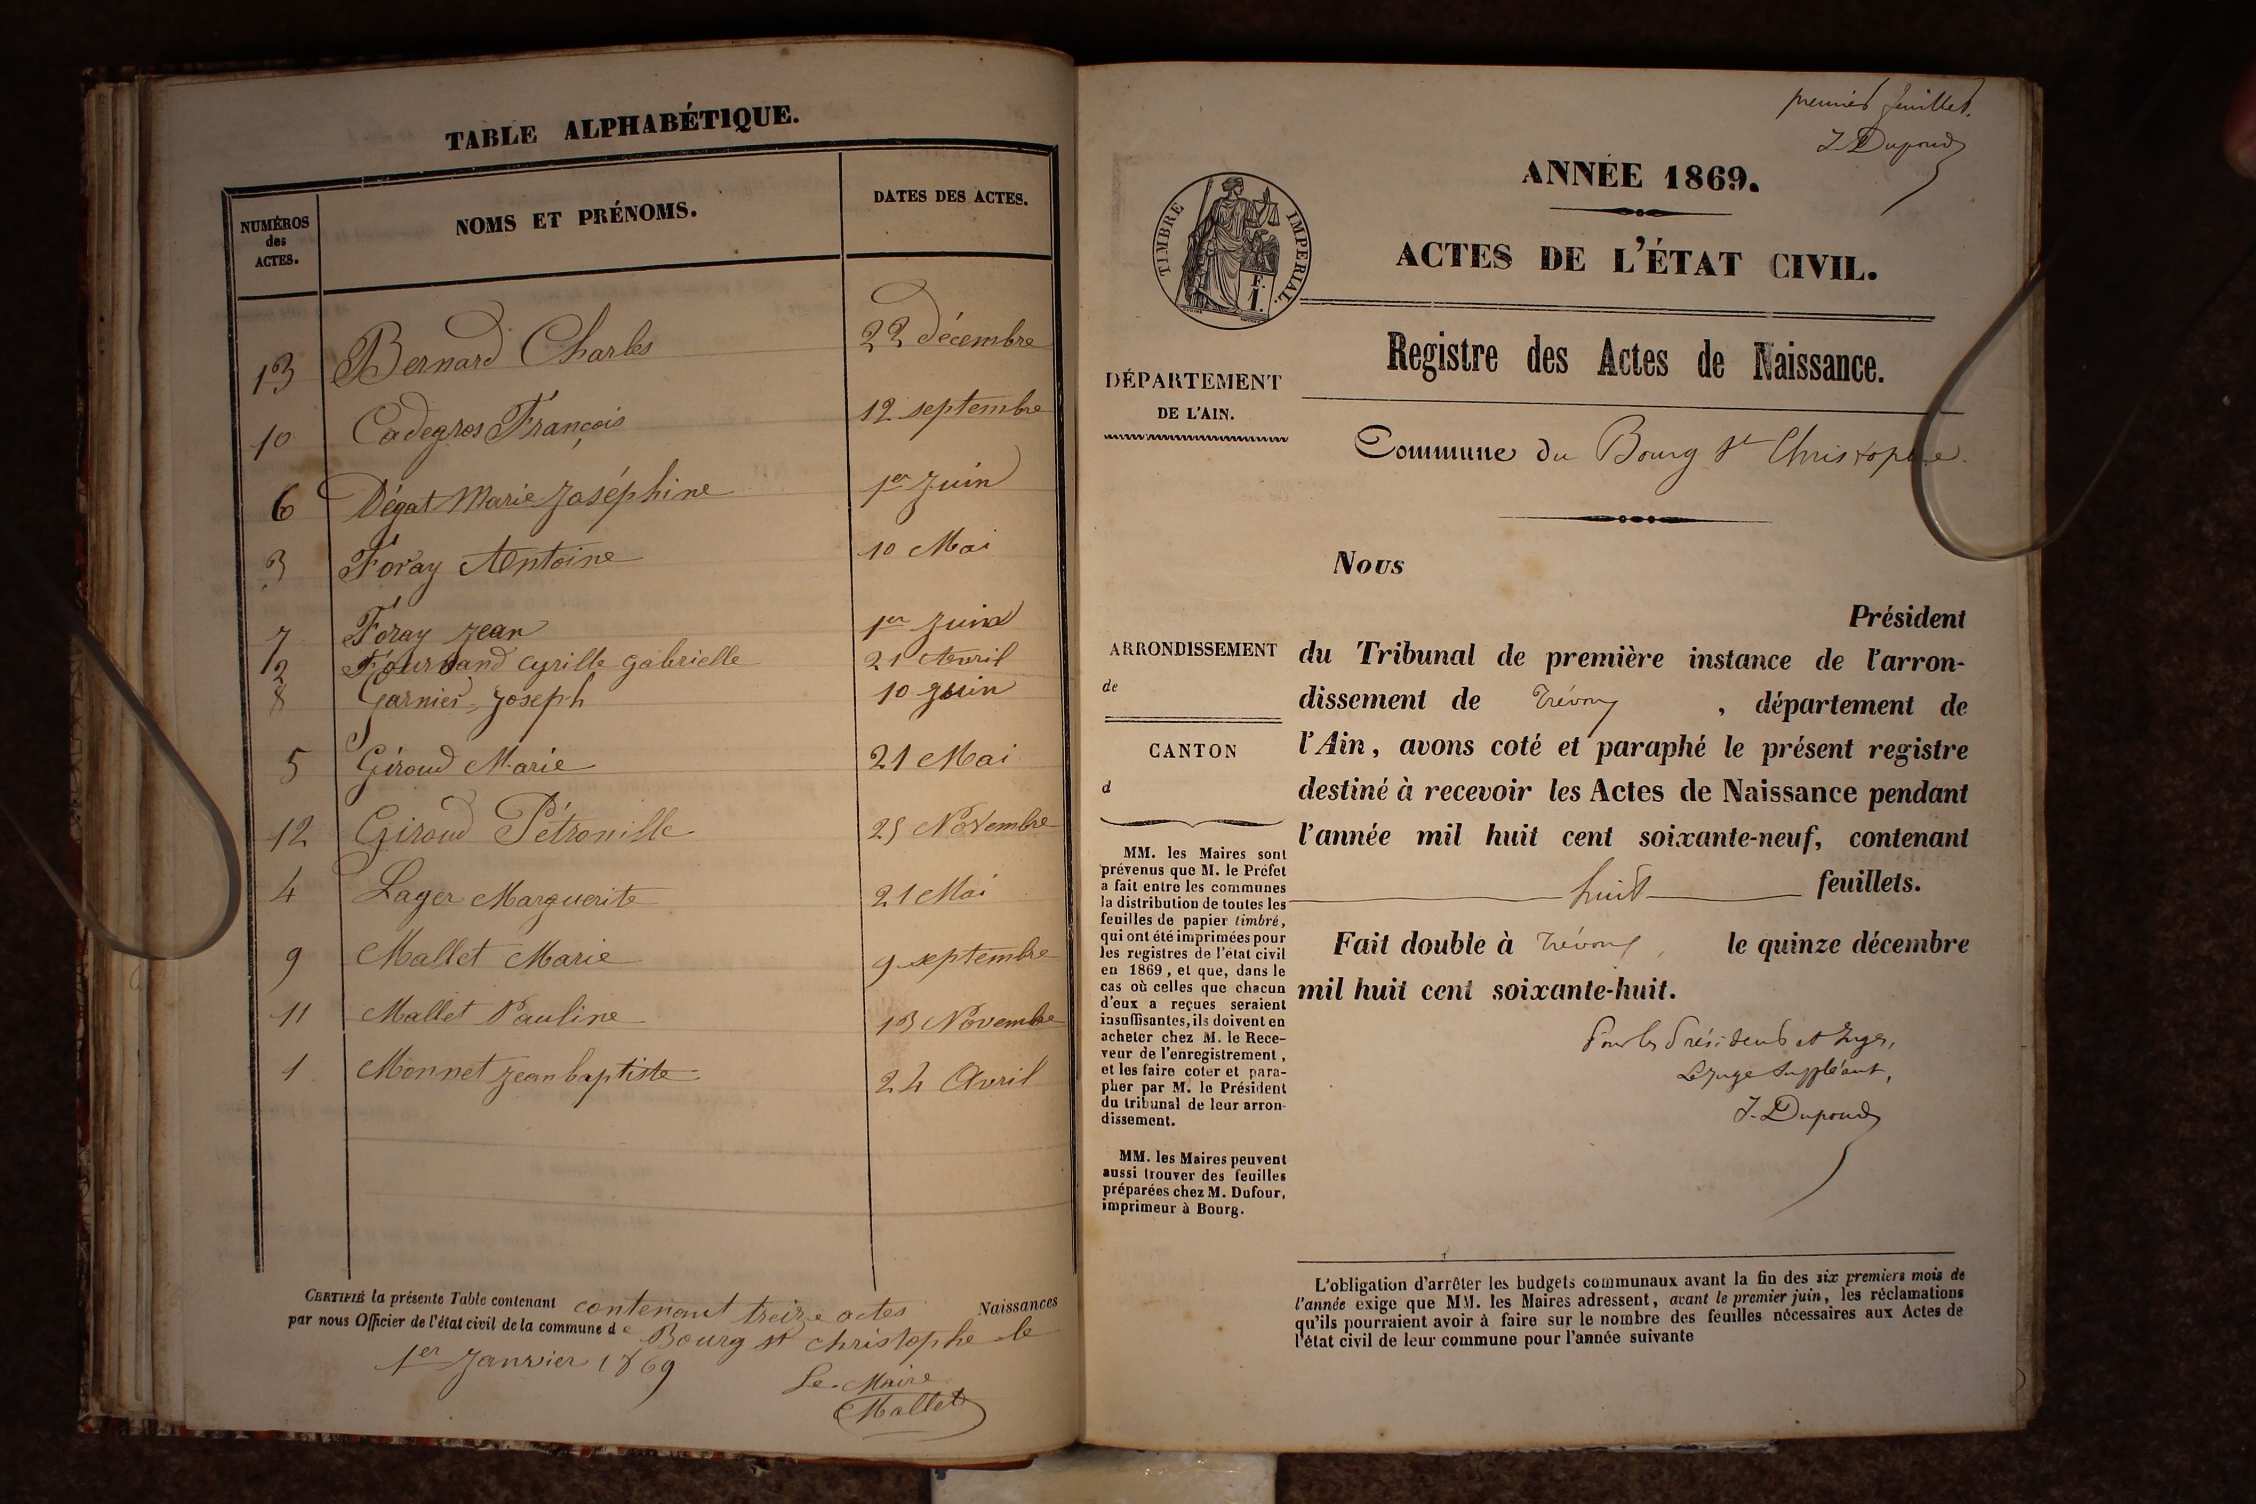 TABLE ALPHABÉTIQUE.
NUMÉROS
des
ACTES.
NOMS ET PRÉNOMS.
DATES DES ACTES.
13 Bernard Charles 22 décembre
10 Cadegros François 12 septembre
6 Dégat Marie Joséphine 1er Juin
3 Foray Antoine 10 Mai
7 Foray Jean 1er Juin
2 Cyrille Gabrielle 21 Avril
8 Garnier Joseph 10 Juin
5 Giroud Marie 21 Mai
12 Giroud Pétronille 25 Novembre
4 Lager Marguerite 21 Mai
9 Mallet Marie 9 septembre
11 Mallet Pauline 13 Novembre
1 Monnet Jean baptiste 24 Avril
CERTIFIÉ la présente Table contenant contenant treize actes Naissances
par nous Officier de l'état civil de la commune de Bourg st christophe le
1er Janvier 1869
Le Maire
Mallet
premier feuillet.
J. Dupond
ANNÉE 1869.
TIMBRE IMPERIAL.
F.
1.
ACTES DE L'ÉTAT CIVIL.
Registre des Actes de Naissance.
DÉPARTEMENT
DE L'AIN.
Commune du Bourg St Christophe.
Nous
Président
ARRONDISSEMENT
de
CANTON
d
du Tribunal de première instance de l'arron-
dissement de Trévoux, département de
l'Ain, avons coté et paraphé le présent registre
destiné à recevoir les Actes de Naissance pendant
l'année mil huit cent soixante-neuf, contenant
huit feuillets.
Fait double à Trévoux, le quinze décembre
mil huit cent soixante-huit.
Pour les Président et Juges,
Le Juge Suppléant,
J. Dupond
MM. les Maires sont
prévenus que M. le Préfet
a fait entre les communes
la distribution de toutes les
feuilles de papier timbré,
qui ont été imprimées pour
les registres de l'état civil
en 1869, et que, dans le
cas où celles que chacun
d'eux a reçues seraient
insuffisantes, ils doivent en
acheter chez M. le Rece-
veur de l'enregistrement,
et les faire coter et para-
pher par M. le Président
du tribunal de leur arron-
dissement.
MM. les Maires peuvent
aussi trouver des feuilles
préparées chez M. Dufour,
imprimeur à Bourg.
L'obligation d'arrêter les budgets communaux avant la fin des six premiers mois de
l'année exige que MM. les Maires adressent, avant le premier juin, les réclamations
qu'ils pourraient avoir à faire sur le nombre des feuilles nécessaires aux Actes de
l'état civil de leur commune pour l'année suivante